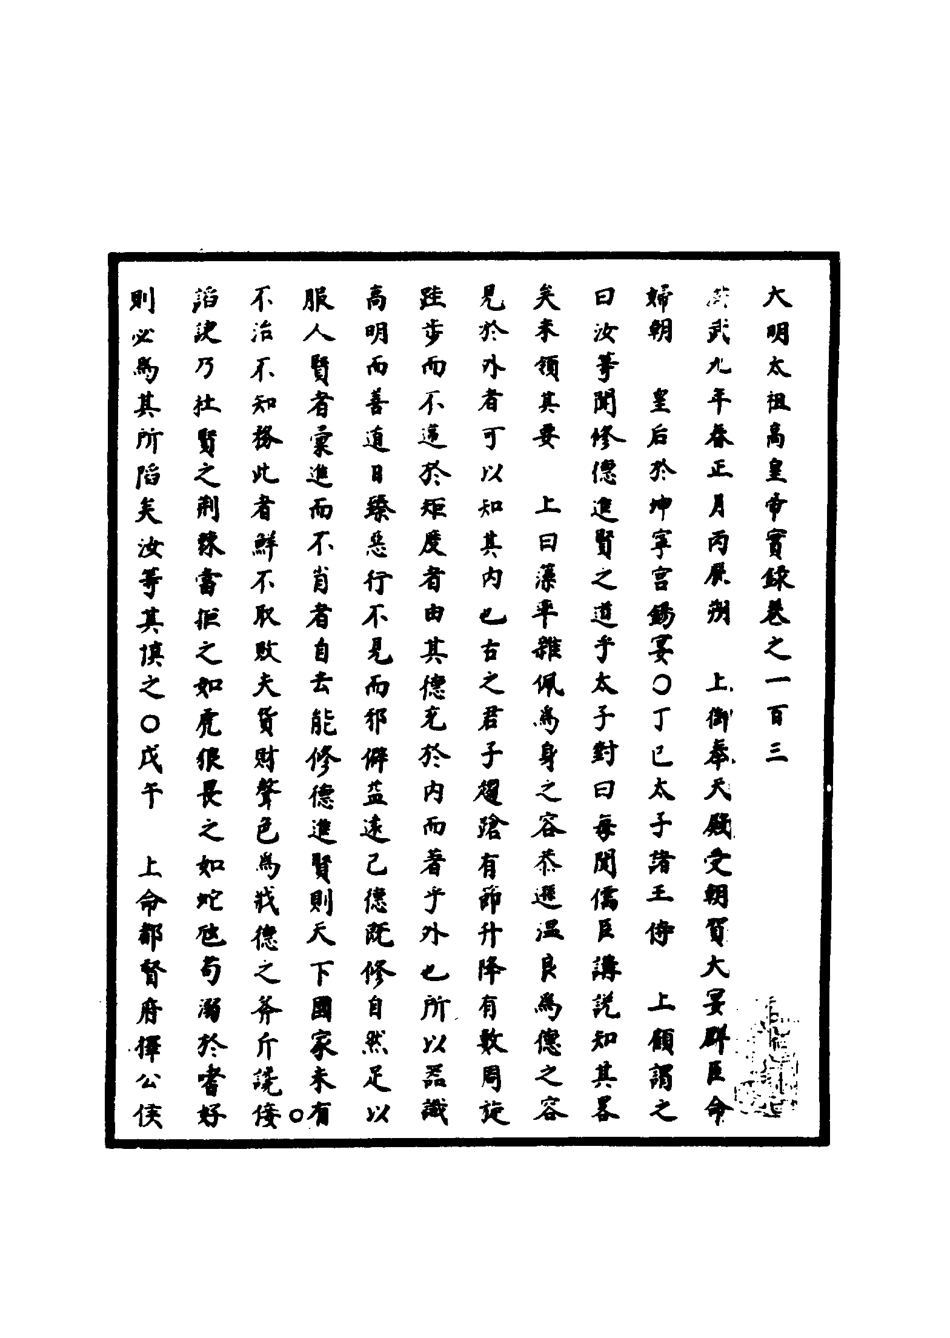 大明太祖高皇帝實錄卷之一百三
洪武九年春正月丙辰朔　上御奉天殿受朝賀大宴群臣命
婦朝　皇后於坤寧宮錫宴○丁巳太子諸王侍　上顧謂之
曰汝等聞修德進賢之道乎太子對曰每聞儒臣講說知其畧
矣未領其要　上曰藻率雜佩為身之容恭遜溫良為德之容
見於外者可以知其內也古之君子趨蹌有節升降有數周旋
跬步而不違於矩度者由其德充於內而著乎外也所以器識
高明而善道日臻惡行不見而邪僻益遠己德既修自然足以
服人賢者彙進而不肖者自去能修德進賢則天下國家未有
不治不知務此者鮮不取敗夫貨財聲色為戕德之斧斤讒佞○
謟諛乃杜賢之荊棘當拒之如虎狼畏之如蛇虺苟溺於嗜好
則必為其所陷矣汝等其慎之○戊午　上命都督府擇公侯